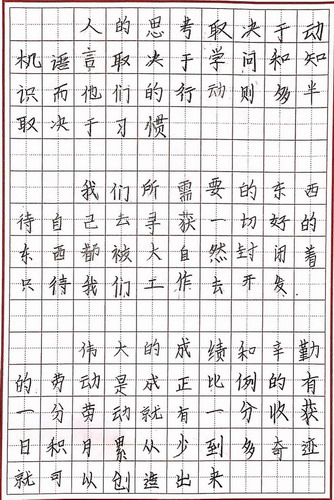 人的思考取决于动
机语言取决于学问和知
识而他们的行动则多半
取决于习惯
我们所需要的东西
待自己去寻获一切好的
东西都被大自然封闭着
只待我们工作去开发.
伟大的成绩和辛勤
的劳动是成正比例的有
一分劳动就有一分收获
日积月累从少到多奇迹
就可以创造出来